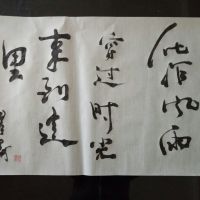 沐栉风雨
穿过时光
来到这
里